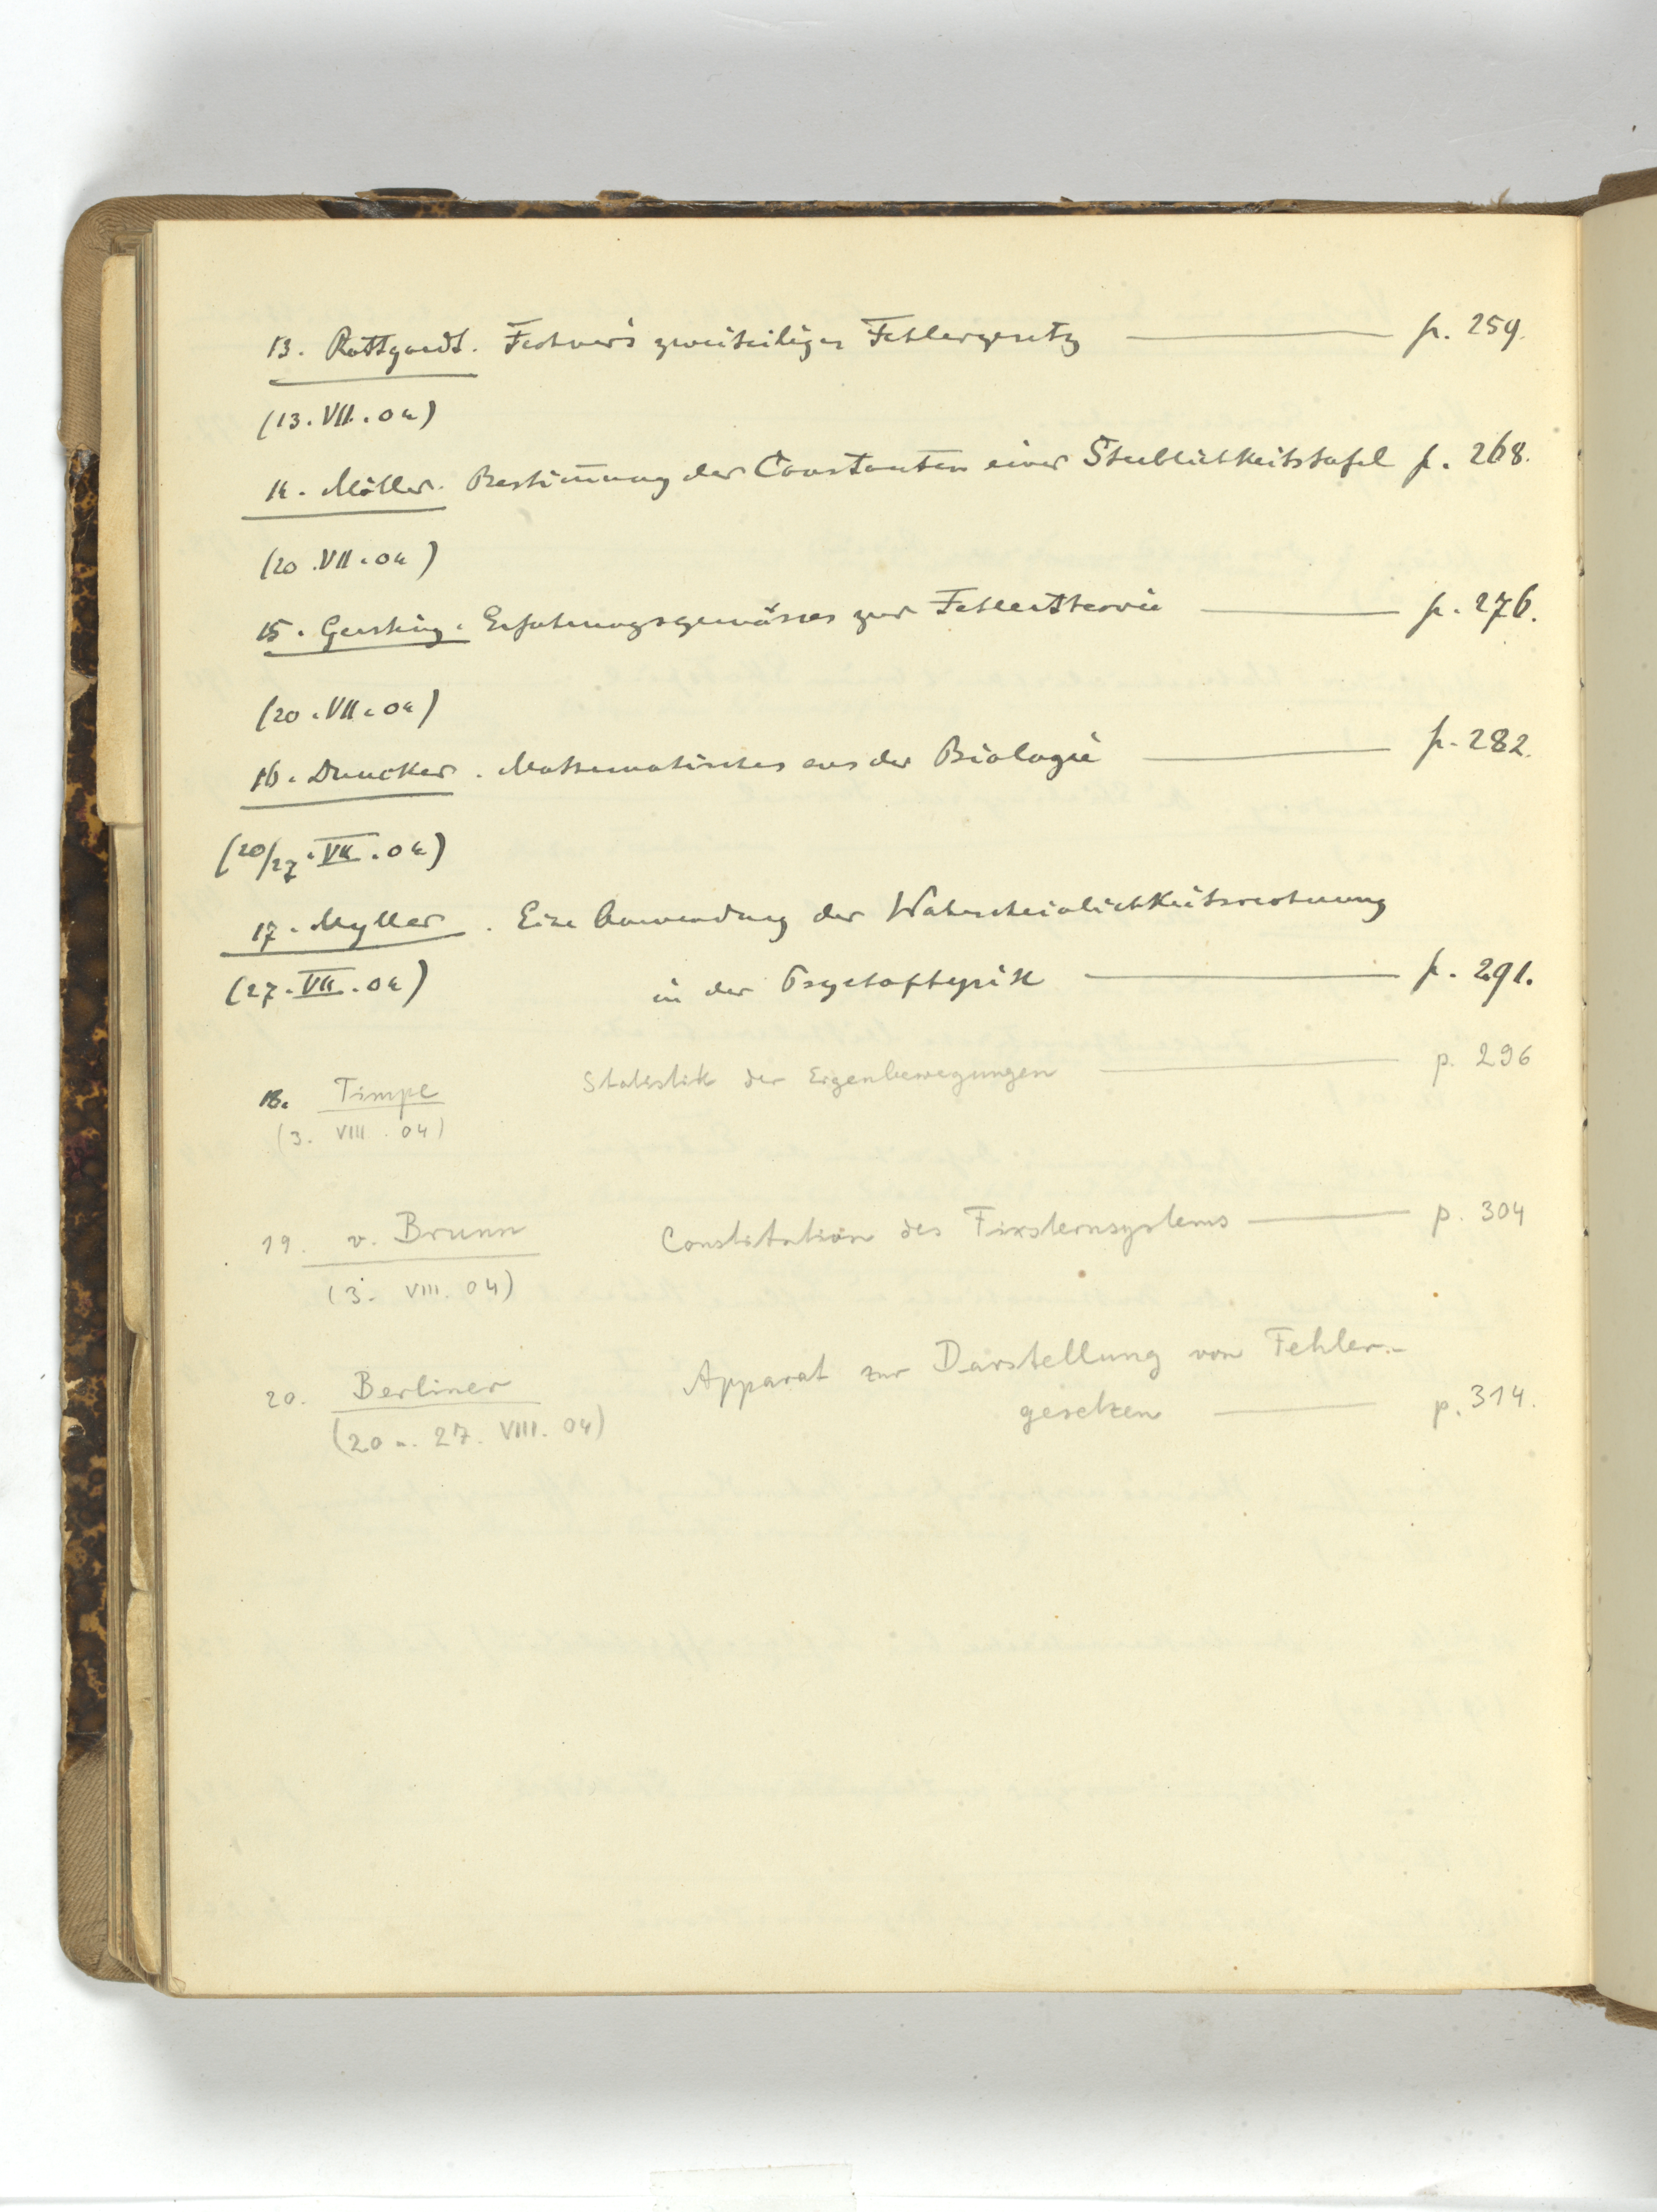 13. Rottgardt. Fechner's zweiseitiges Fehlergesetz — p. 259.
(13. VII. 04)
14. Möller. Bestimmung der Constanten einer Sterblichkeitstafel p. 268.
(20. VII. 04)
15. Gersting. Erfahrungsgemässes zur Fehlertheorie — p. 276.
(20. VII. 04)
16. Duncker. Mathematisches aus der Biologie — p. 282.
(20/27. VII. 04)
17. Myller. Eine Anwendung der Wahrscheinlichkeitsrechnung
(27. VII. 04) in der Psychophysik — p. 291.
18. Timpe Statistik der Eigenbewegungen — p. 296
(3. VIII. 04)
19. v. Brunn Constitution des Fixsternsystems — p. 304
(3. VIII. 04)
20. Berliner Apparat zur Darstellung von Fehler-
gesetzen — p. 314.
(20 u. 27. VIII. 04)